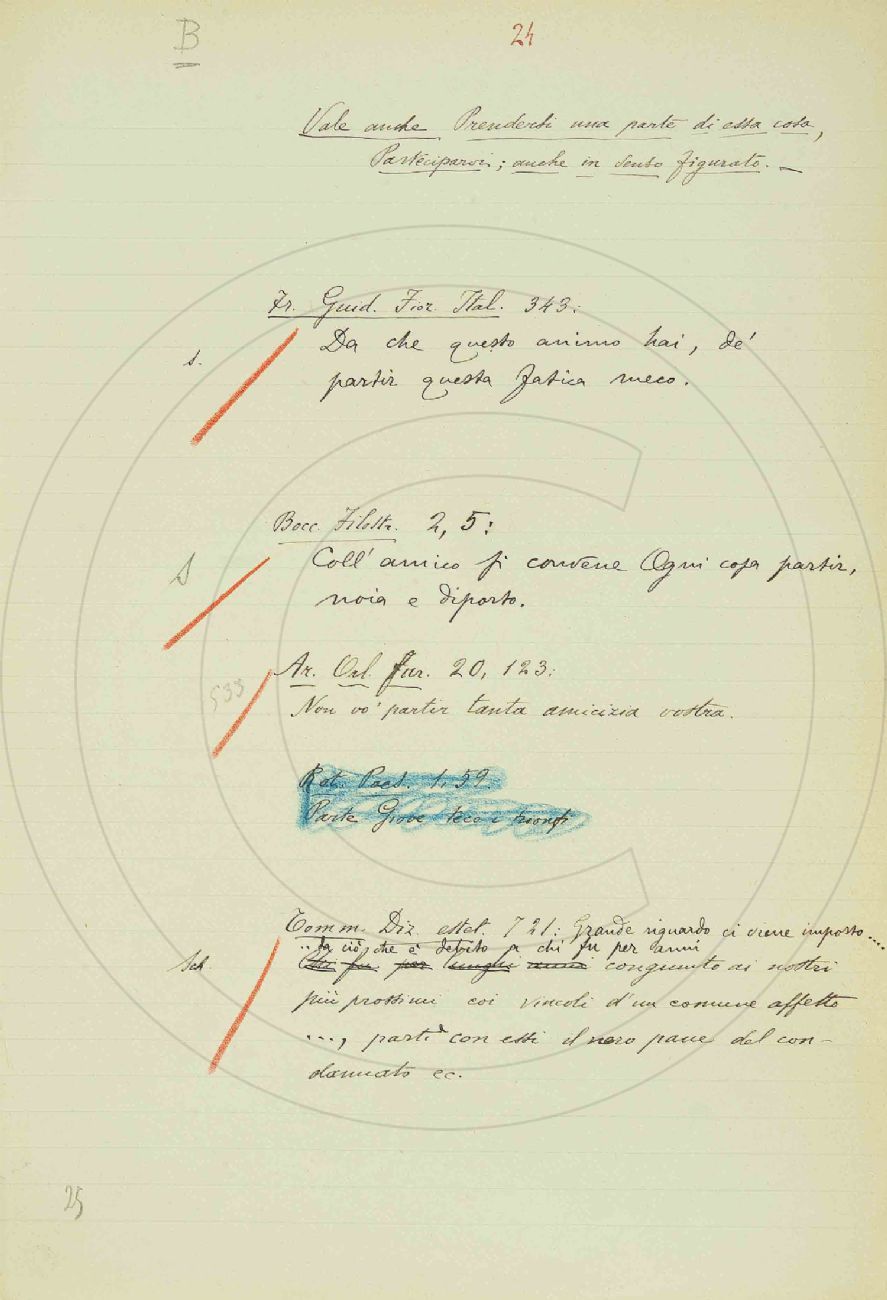 B
24
Vale anche Prendersi una parte di essa cosa,
Parteciparvi; anche in senso figurato. —
Fr. Guid. Fior. Ital. 343:
s.
Da che questo animo hai, de'
partir questa fatica meco.
Bocc. Filostr. 2, 5:
S
Coll' amico si convene Ogni cosa partir,
noia e diporto.
Ar. Orl. Fur. 20, 123:
533
Non vo' partir tanta amicizia vostra.
Parte Giove teco i trionfi
Tomm. Diz. estet. 721: Grande riguardo ci viene imposto ....
... da ciò che è debito a chi fu per anni
Sch
Chi fu per lunghi anni congiunto ai nostri
più prossimi coi vincoli d'un comune affetto
..., partì con essi il nero pane del con-
dannato ec.
25